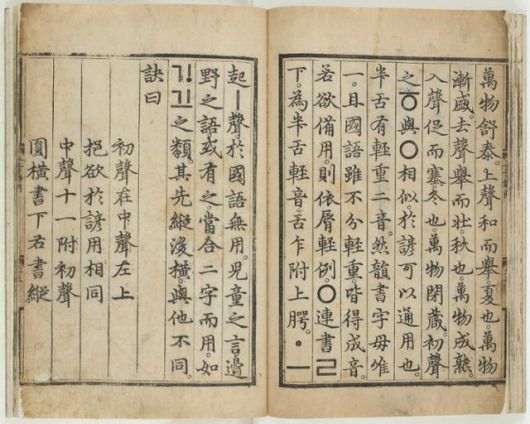 萬物舒泰。上聲和而擧。夏也。萬物
漸盛。去聲擧而壯。秋也。萬物成熟。
入聲促而塞。冬也。萬物閉藏。初聲
之ㆆ與ㅇ相似。於諺可以通用也。
半舌有輕重二音。然韻書字母唯
一。且國語雖不分輕重。皆得成音。
若欲備用。則依脣輕例。ㅇ連書ㄹ
下。為半舌輕音。舌乍附上腭。ㆍㅡ
起ㅣ聲。於國語無用。兒童之言。邊
野之語。或有之。當合二字而用。如
ᄀᆝᄀᆜ之類。其先縱後橫。與他不同。
訣曰
初聲在中聲左上
挹欲於諺用相同
中聲十一附初聲
圓橫書下右書縱